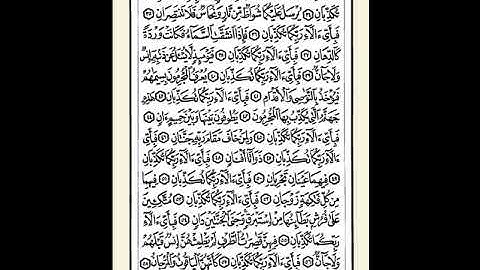 تُكَذِّبَانِ ٣٤ يُرْسَلُ عَلَيْكُمَا شُوَاظٌ مِّن نَّارٍ وَنُحَاسٌ فَلَا تَنتَصِرَانِ ٣٥
فَبِأَيِّ ءَالَآءِ رَبِّكُمَا تُكَذِّبَانِ ٣٦ فَإِذَا ٱنشَقَّتِ ٱلسَّمَآءُ فَكَانَتْ وَرْدَةً
كَٱلدِّهَانِ ٣٧ فَبِأَيِّ ءَالَآءِ رَبِّكُمَا تُكَذِّبَانِ ٣٨ فَيَوْمَئِذٍ لَّا يُسْـَٔلُ عَن ذَنۢبِهِۦٓ إِنسٌ
وَلَا جَآنٌّ ٣٩ فَبِأَيِّ ءَالَآءِ رَبِّكُمَا تُكَذِّبَانِ ٤٠ يُعْرَفُ ٱلْمُجْرِمُونَ بِسِيمَٰهُمْ
فَيُؤْخَذُ بِٱلنَّوَٰصِى وَٱلْأَقْدَامِ ٤١ فَبِأَيِّ ءَالَآءِ رَبِّكُمَا تُكَذِّبَانِ ٤٢ هَٰذِهِۦ
جَهَنَّمُ ٱلَّتِى يُكَذِّبُ بِهَا ٱلْمُجْرِمُونَ ٤٣ يَطُوفُونَ بَيْنَهَا وَبَيْنَ حَمِيمٍ ءَانٍ ٤٤
فَبِأَيِّ ءَالَآءِ رَبِّكُمَا تُكَذِّبَانِ ٤٥ وَلِمَنْ خَافَ مَقَامَ رَبِّهِۦ جَنَّتَانِ ٤٦ فَبِأَيِّ
ءَالَآءِ رَبِّكُمَا تُكَذِّبَانِ ٤٧ ذَوَاتَآ أَفْنَانٍ ٤٨ فَبِأَيِّ ءَالَآءِ رَبِّكُمَا تُكَذِّبَانِ
٤٩ فِيهِمَا عَيْنَانِ تَجْرِيَانِ ٥٠ فَبِأَيِّ ءَالَآءِ رَبِّكُمَا تُكَذِّبَانِ ٥١ فِيهِمَا
مِن كُلِّ فَٰكِهَةٍ زَوْجَانِ ٥٢ فَبِأَيِّ ءَالَآءِ رَبِّكُمَا تُكَذِّبَانِ ٥٣ مُتَّكِـِٔينَ
عَلَىٰ فُرُشٍۭ بَطَآئِنُهَا مِنْ إِسْتَبْرَقٍ وَجَنَى ٱلْجَنَّتَيْنِ دَانٍ ٥٤ فَبِأَيِّ ءَالَآءِ
رَبِّكُمَا تُكَذِّبَانِ ٥٥ فِيهِنَّ قَٰصِرَٰتُ ٱلطَّرْفِ لَمْ يَطْمِثْهُنَّ إِنسٌ قَبْلَهُمْ
وَلَا جَآنٌّ ٥٦ فَبِأَيِّ ءَالَآءِ رَبِّكُمَا تُكَذِّبَانِ ٥٧ كَأَنَّهُنَّ ٱلْيَاقُوتُ وَٱلْمَرْجَانُ ٥٨